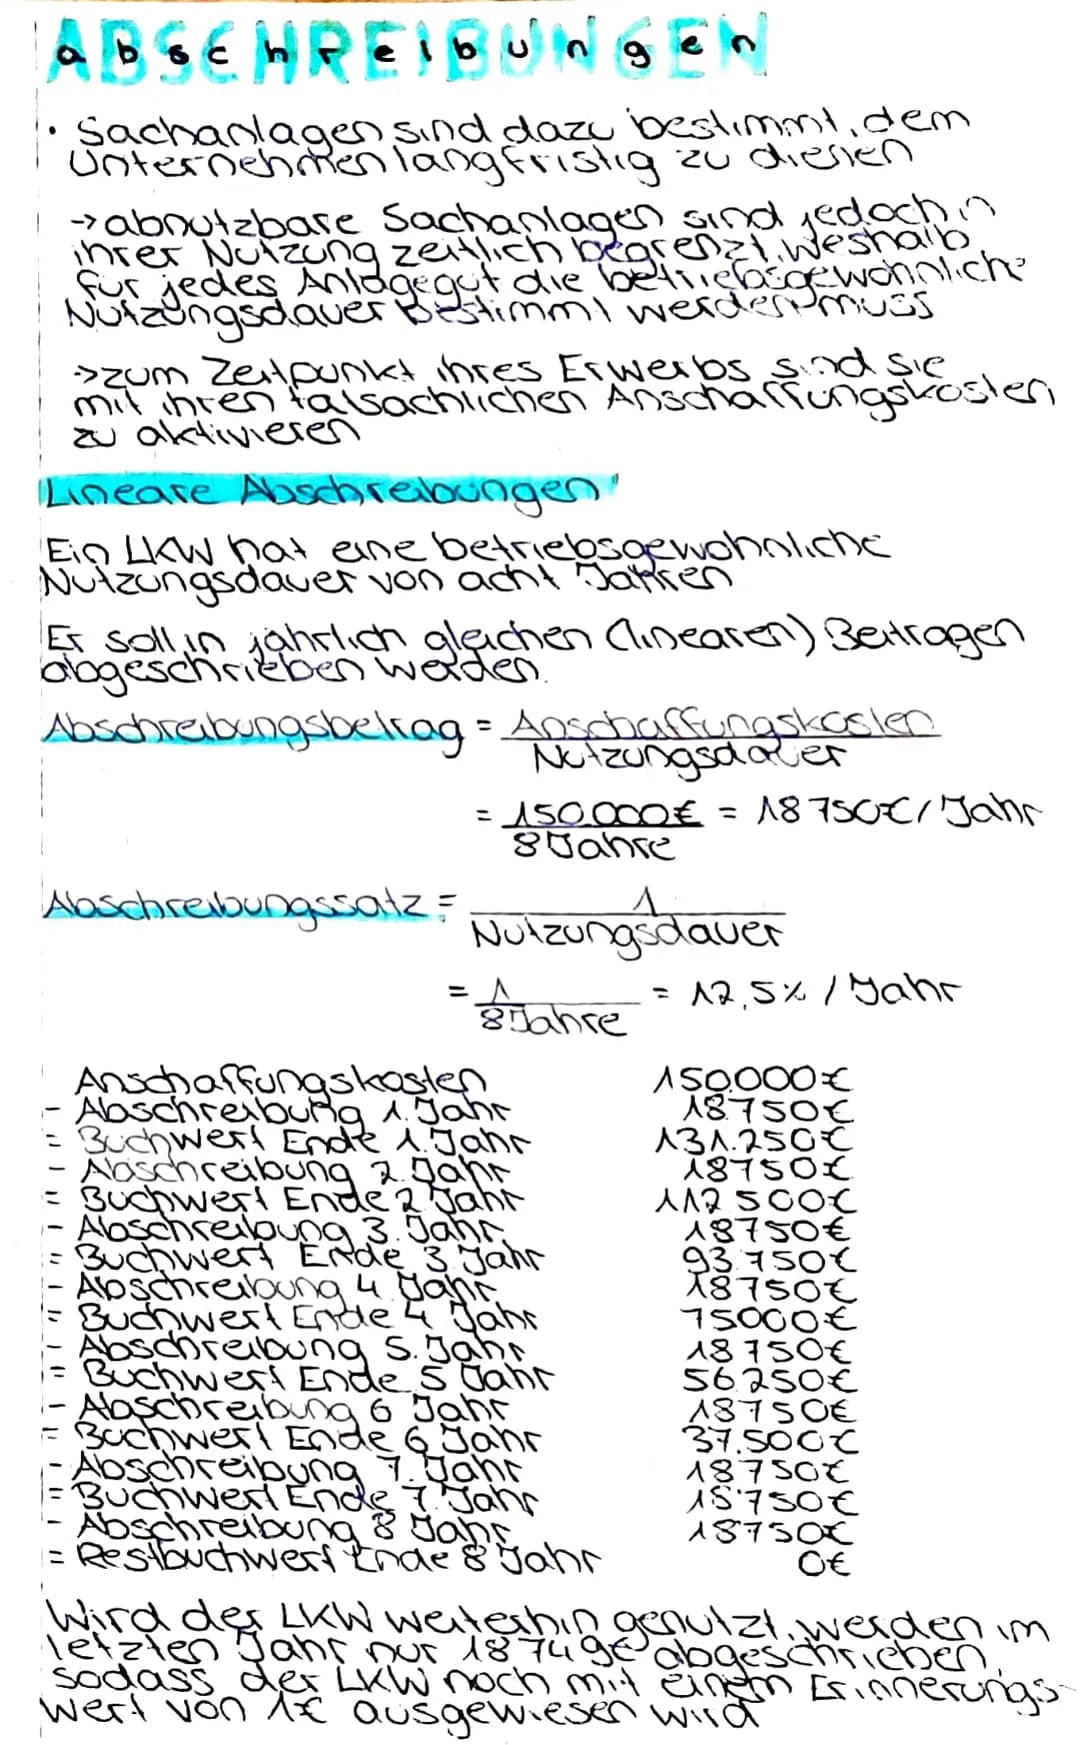 ABSCHREIBUNGEN
abschreibungen
• Sachanlagen sind dazu bestimmt, dem
Unternehmen langfristig zu dienen
→ abnutzbare Sachanlagen sind jedoch in
ihrer Nutzung zeitlich begrenzt, weshalb
für jedes Anlagegut die betriebsgewöhnliche
Nutzungsdauer bestimmt werden muss
→ zum Zeitpunkt ihres Erwerbs sind sie
mit ihren tatsächlichen Anschaffungskosten
zu aktivieren
Lineare Abschreibungen
Ein LKW hat eine betriebsgewöhnliche
Nutzungsdauer von acht Jahren
Er soll in jährlich gleichen (linearen) Beiträgen
abgeschrieben werden.
Abschreibungsbetrag = Anschaffungskosten
Nutzungsdauer
= 150.000€ = 18750€/Jahr
8 Jahre
Abschreibungssatz = 1
Nutzungsdauer
= 1 = 12,5% / Jahr
8 Jahre
Anschaffungskosten 150.000€
- Abschreibung 1. Jahr 18.750€
= Buchwert Ende 1. Jahr 131.250€
- Abschreibung 2. Jahr 18750€
= Buchwert Ende 2 Jahr 112 500€
- Abschreibung 3. Jahr 18750€
= Buchwert Ende 3 Jahr 93.750€
- Abschreibung 4 Jahr 18750€
= Buchwert Ende 4 Jahr 75000€
- Abschreibung 5. Jahr 18 750€
= Buchwert Ende 5 Jahr 56.250€
- Abschreibung 6 Jahr 18750€
= Buchwert Ende 6 Jahr 37.500€
- Abschreibung 7. Jahr 18750€
= Buchwert Ende 7. Jahr 18.750€
- Abschreibung 8 Jahr 18750€
= Restbuchwert Ende 8 Jahr 0€
Wird der LKW weiterhin genutzt, werden im
letzten Jahr nur 18 749€ abgeschrieben,
sodass der LKW noch mit einem Erinnerungs-
wert von 1€ ausgewiesen wird